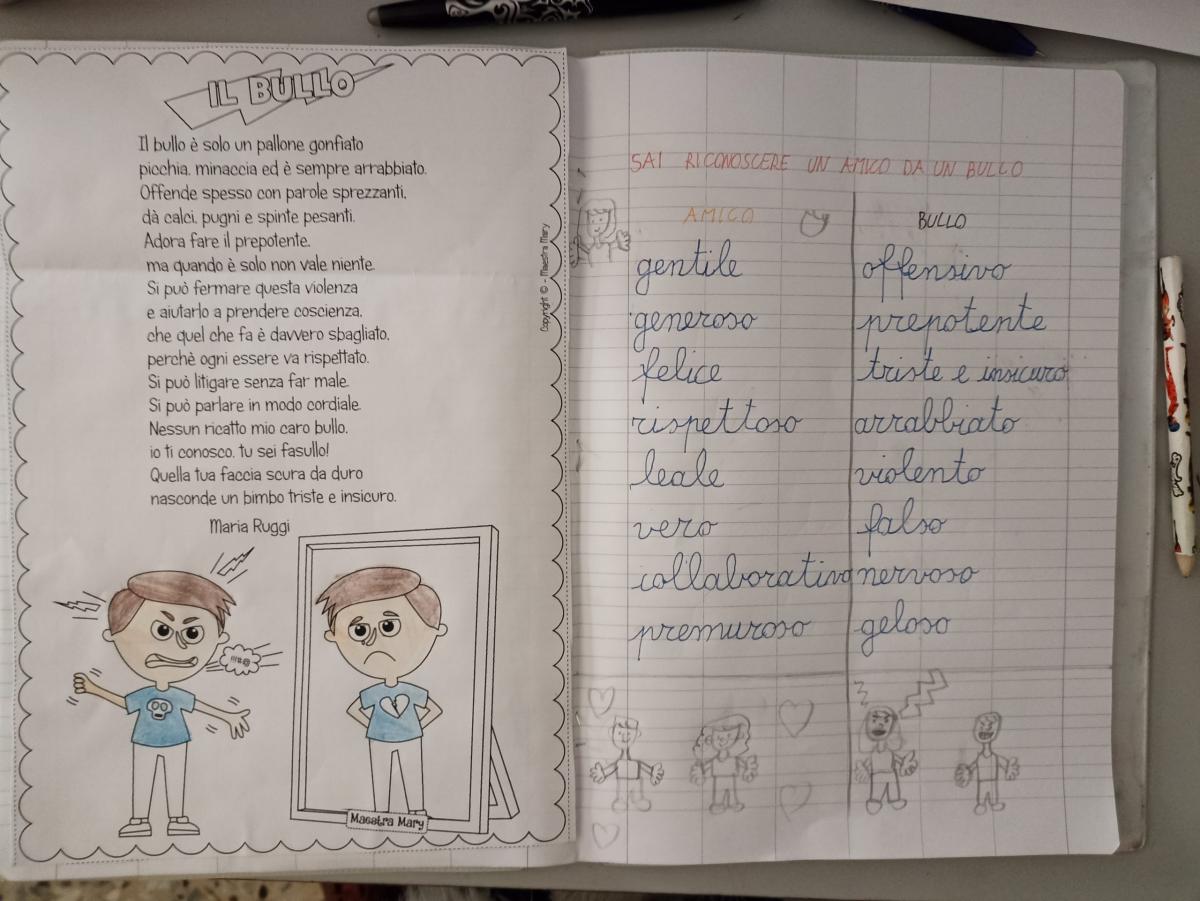 IL BULLO
Il bullo è solo un pallone gonfiato
picchia, minaccia ed è sempre arrabbiato.
Offende spesso con parole sprezzanti,
dà calci, pugni e spinte pesanti.
Adora fare il prepotente,
ma quando è solo non vale niente.
Si può fermare questa violenza
e aiutarlo a prendere coscienza,
che quel che fa è davvero sbagliato,
perchè ogni essere va rispettato.
Si può litigare senza far male.
Si può parlare in modo cordiale.
Nessun ricatto mio caro bullo,
io ti conosco, tu sei fasullo!
Quella tua faccia scura da duro
nasconde un bimbo triste e insicuro.
Maria Ruggi
!!!#@
Maestra Mary
Copyright © - Maestra Mary
SAI RICONOSCERE UN AMICO DA UN BULLO
AMICO BULLO
gentile offensivo
generoso prepotente
felice triste e insicuro
rispettoso arrabbiato
leale violento
vero falso
collaborativo nervoso
premuroso geloso